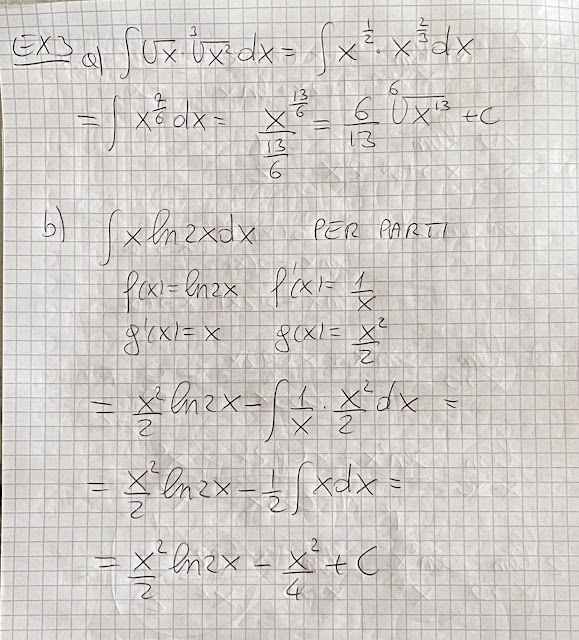 EX3 a) ∫ √x · ∛x² dx = ∫ x^(1/2) · x^(2/3) dx
= ∫ x^(7/6) dx = x^(13/6) / (13/6) = 6/13 ⁶√x¹³ + C
b) ∫ x ln 2x dx PER PARTI
f(x) = ln 2x f'(x) = 1/x
g'(x) = x g(x) = x²/2
= x²/2 ln 2x - ∫ 1/x · x²/2 dx =
= x²/2 ln 2x - 1/2 ∫ x dx =
= x²/2 ln 2x - x²/4 + C